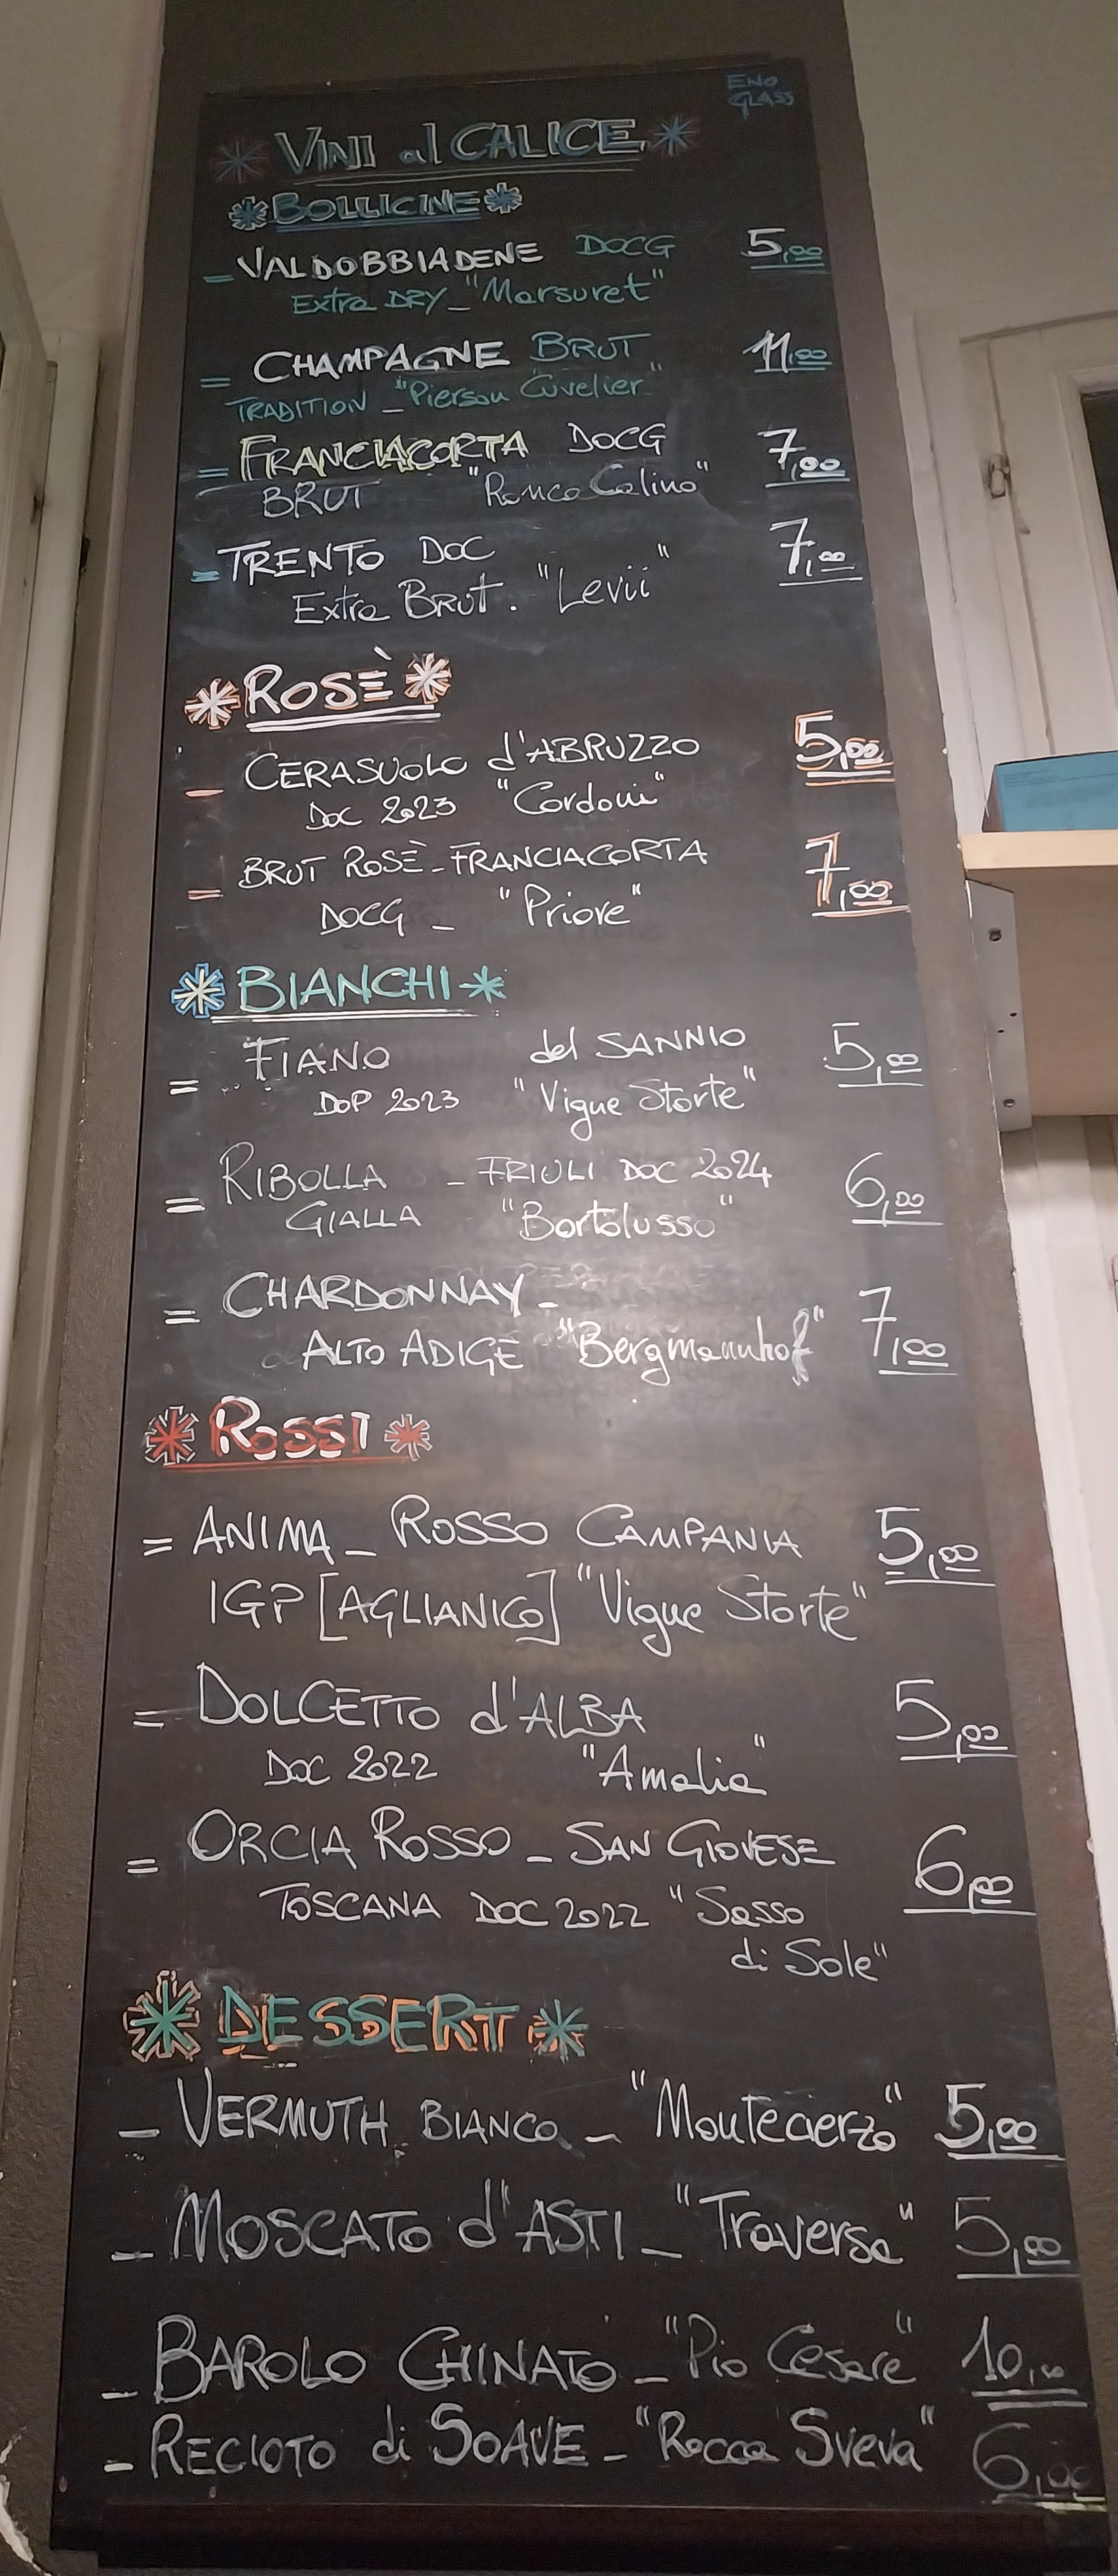 ENO
GLASS
* VINI al CALICE *
* BOLLICINE *
= VALDOBBIADENE DOCG 5,00
Extra DRY _ "Marsuret"
= CHAMPAGNE BRUT 11,00
TRADITION _ "Pierson Cuvelier"
= FRANCIACORTA DOCG 7,00
BRUT "Ronco Calino"
= TRENTO DOC 7,00
Extra BRUT. "Levii"
* ROSÈ *
_ CERASUOLO d'ABRUZZO 5,00
DOC 2023 "Cordoni"
= BRUT ROSÈ - FRANCIACORTA 7,00
DOCG _ "Priore"
* BIANCHI *
= FIANO del SANNIO 5,00
DOP 2023 "Vigne Storte"
= RIBOLLA - FRIULI DOC 2024 6,00
GIALLA "Bortolusso"
= CHARDONNAY - 7,00
ALTO ADIGE "Bergmannhof"
* ROSSI *
= ANIMA _ ROSSO CAMPANIA 5,00
IGP [AGLIANICO] "Vigne Storte"
= DOLCETTO d'ALBA 5,00
DOC 2022 "Amalia"
= ORCIA ROSSO _ SAN GIOVESE 6,00
TOSCANA DOC 2022 "Sasso
di Sole"
* DESSERT *
_ VERMUTH BIANCO _ "Montecierzo" 5,00
_ MOSCATO d'ASTI _ "Traversa" 5,00
_ BAROLO CHINATO _ "Pio Cesare" 10,00
_ RECIOTO di SOAVE _ "Rocca Sveva" 6,00